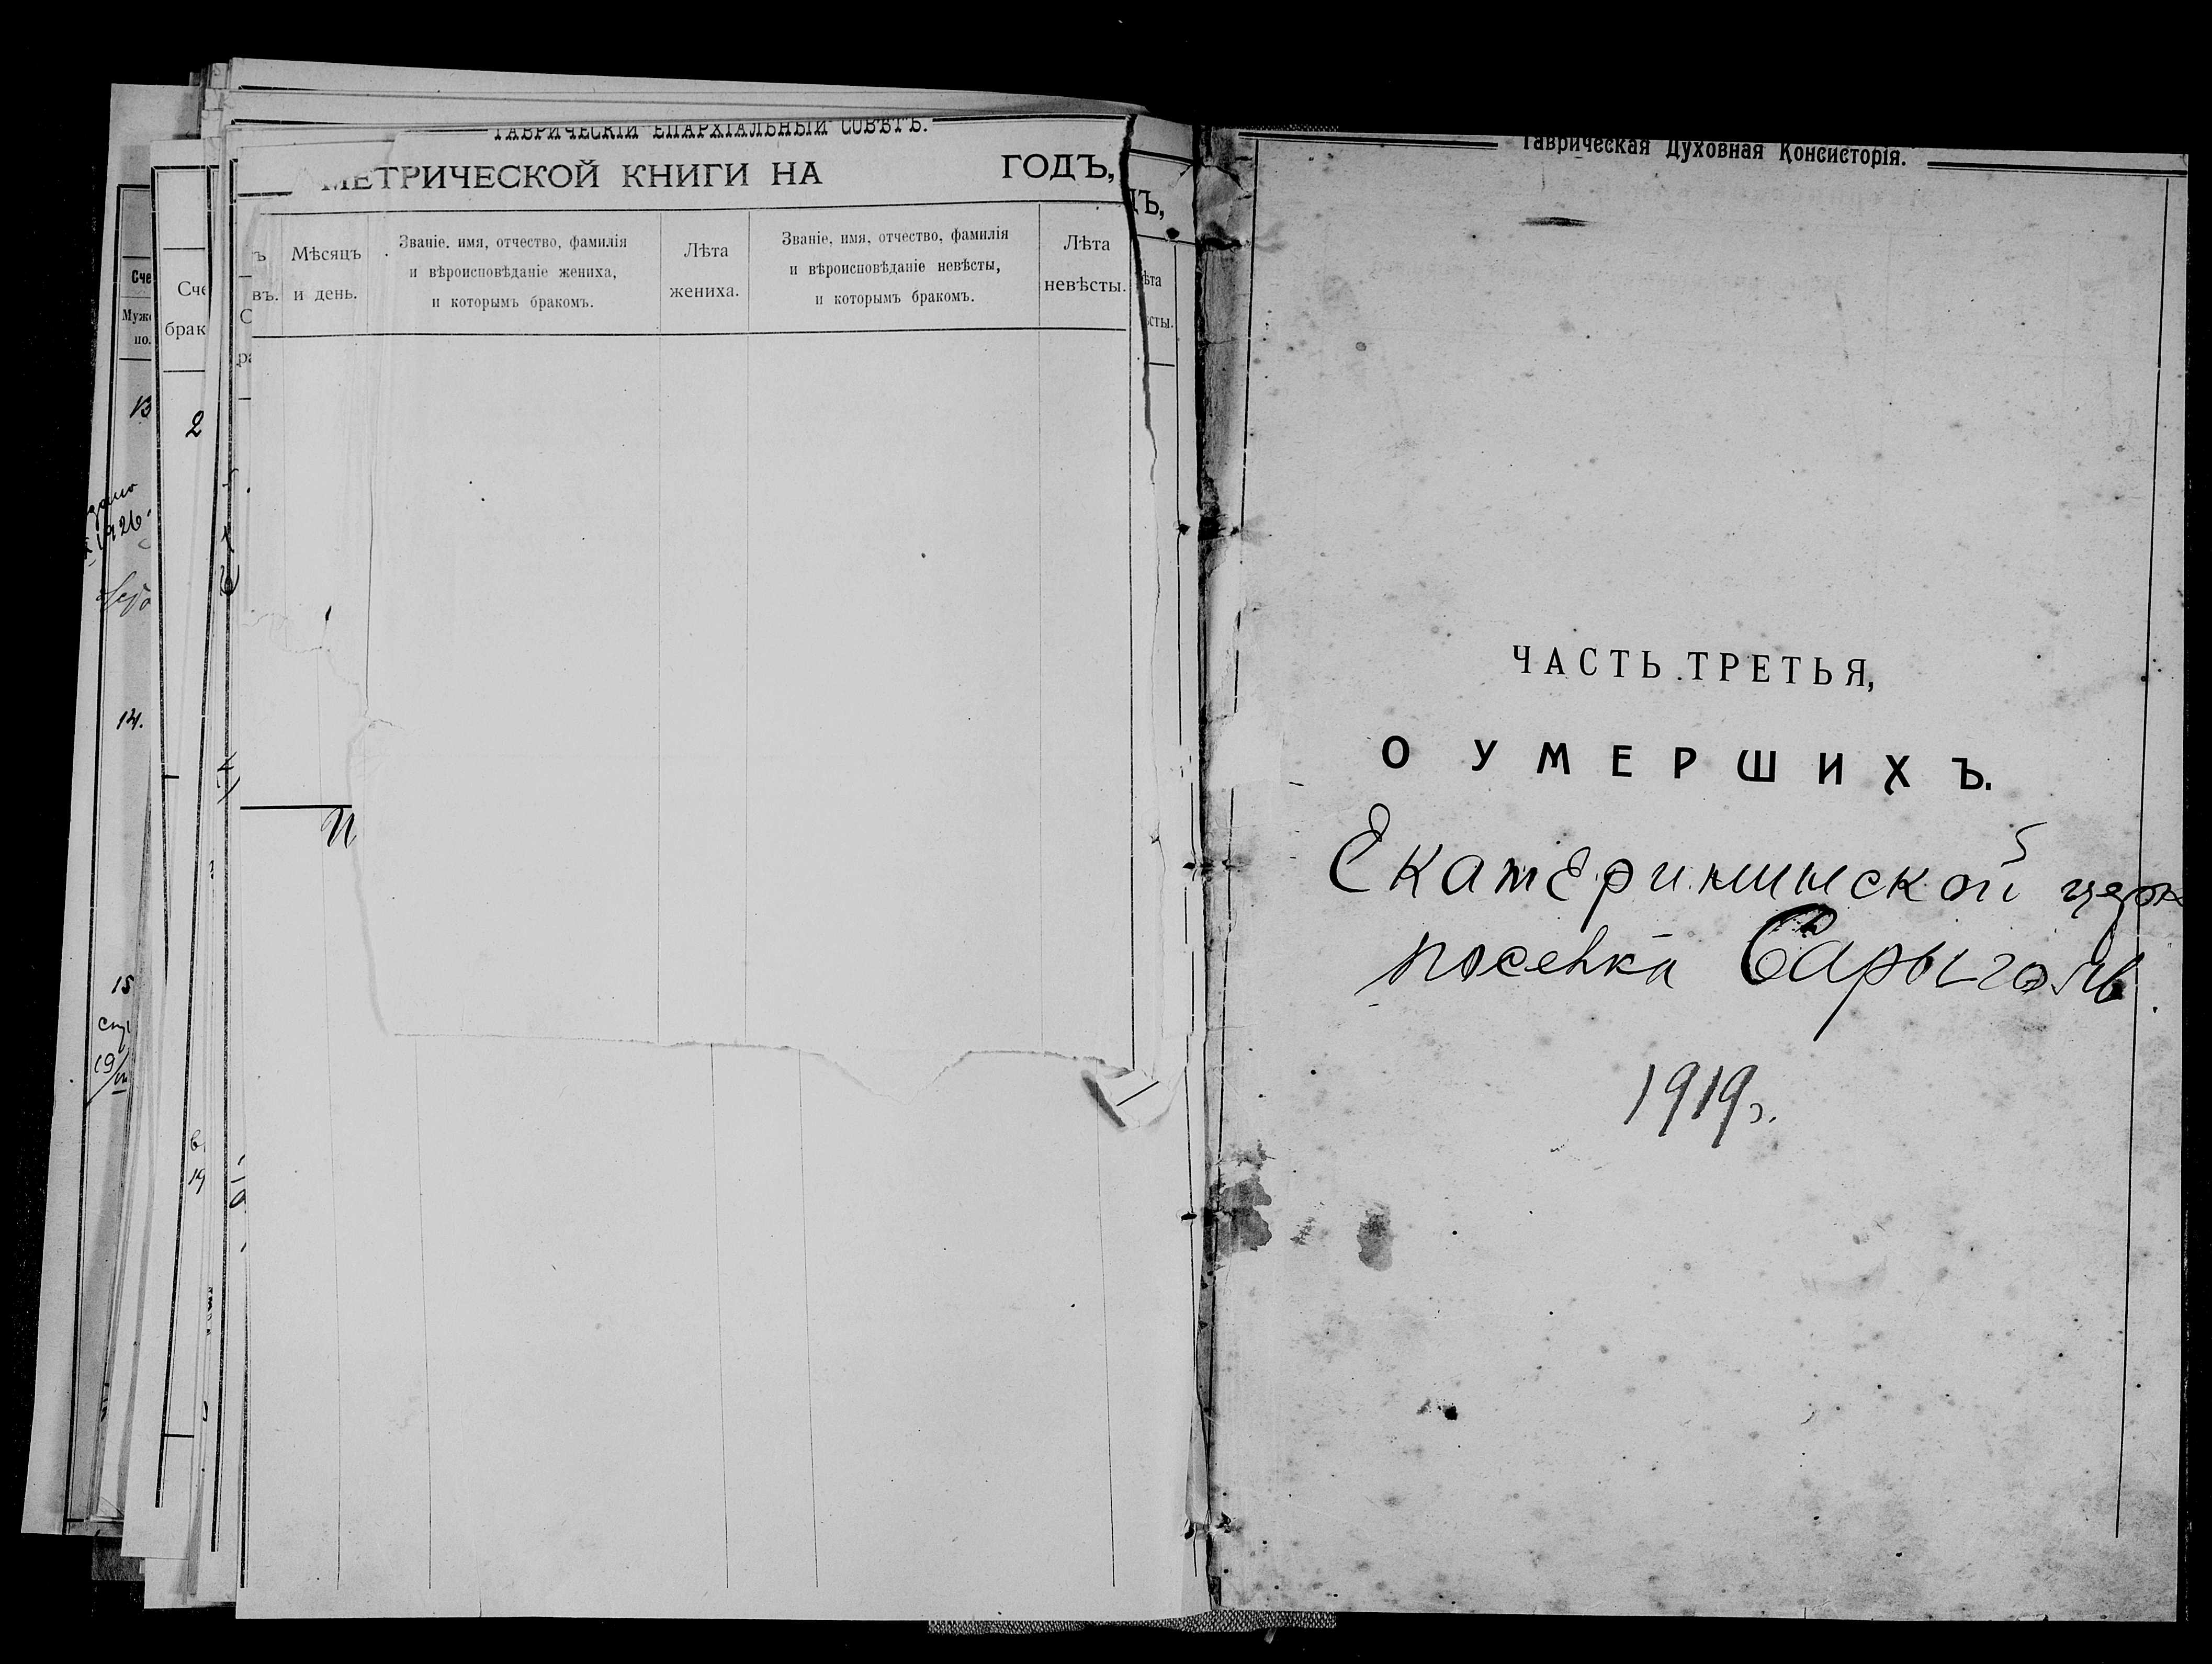 ТАВРИЧЕСКІЙ ЕПАРХІАЛЬНЫЙ СОВѢТЪ.
МЕТРИЧЕСКОЙ КНИГИ НА ГОДЪ,
Мѣсяцъ
и день.
Званіе, имя, отчество, фамилія
и вѣроисповѣданіе жениха,
и которымъ бракомъ.
Лѣта
жениха.
Званіе, имя, отчество, фамилія
и вѣроисповѣданіе невѣсты,
и которымъ бракомъ.
Лѣта
невѣсты.
ДЪ,
ѣта
сты.
Сче
Муже
по.
Сче
брак
13
2
1926
14.
15
19
Таврическая Духовная Консисторія.
ЧАСТЬ ТРЕТЬЯ,
О УМЕРШИХЪ.
Екатерининской церк
поселка Сарыголь.
1919 г.